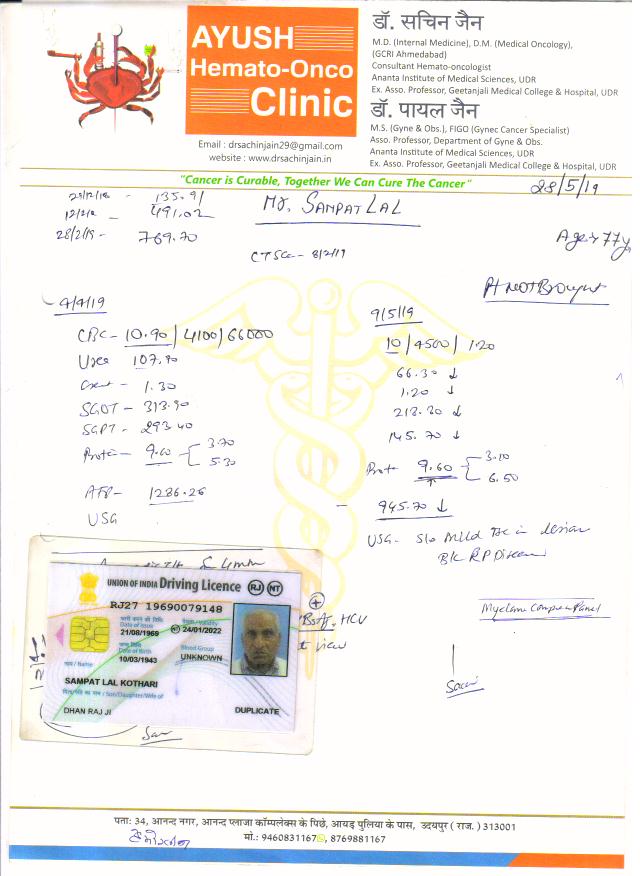 AYUSH
Hemato-Onco
Clinic
Email : drsachinjain29@gmail.com
website : www.drsachinjain.in
डॉ. सचिन जैन
M.D. (Internal Medicine), D.M. (Medical Oncology),
(GCRI Ahmedabad)
Consultant Hemato-oncologist
Ananta Institute of Medical Sciences, UDR
Ex. Asso. Professor, Geetanjali Medical College & Hospital, UDR
डॉ. पायल जैन
M.S. (Gyne & Obs.), FIGO (Gynec Cancer Specialist)
Asso. Professor, Department of Gyne & Obs.
Ananta Institute of Medical Sciences, UDR
Ex. Asso. Professor, Geetanjali Medical College & Hospital, UDR
"Cancer is Curable, Together We Can Cure The Cancer"
28/5/19
135.91
491.02
28/2/19 - 769.70
Mr. SAMPAT LAL
Age 77y
CTSca - 8/2/19
Pt not Brought
4/4/19
CBC - 10.90 / 4100 / 66000
Urea 107.90
Creat - 1.30
SGOT - 313.90
SGPT - 293.40
Protein - 9.00 3.70
5.30
AFP - 1286.26
USG
9/5/19
10 / 4500 / 1.20
66.30 ↓
1.20 ↓
213.30 ↓
145.70 ↓
Prot 9.60 3.10
6.50
945.70 ↓
USG - S/o Mild
B/L RP Disease
Myeloma Comprehen Panel
HCV
view
UNION OF INDIA Driving Licence RJ NT
RJ27 19690079148
जारी करने की तिथि
Date of Issue
21/08/1969
वैधता / Validity
NT 24/01/2022
जन्म तिथि
Date of Birth
10/03/1943
Blood Group
UNKNOWN
नाम / Name
SAMPAT LAL KOTHARI
पिता/पति का नाम / Son/Daughter/Wife of
DHAN RAJ JI
DUPLICATE
पता: 34, आनन्द नगर, आनन्द प्लाजा कॉम्पलेक्स के पिछे, आयड़ पुलिया के पास, उदयपुर ( राज. ) 313001
मो.: 9460831167, 8769881167